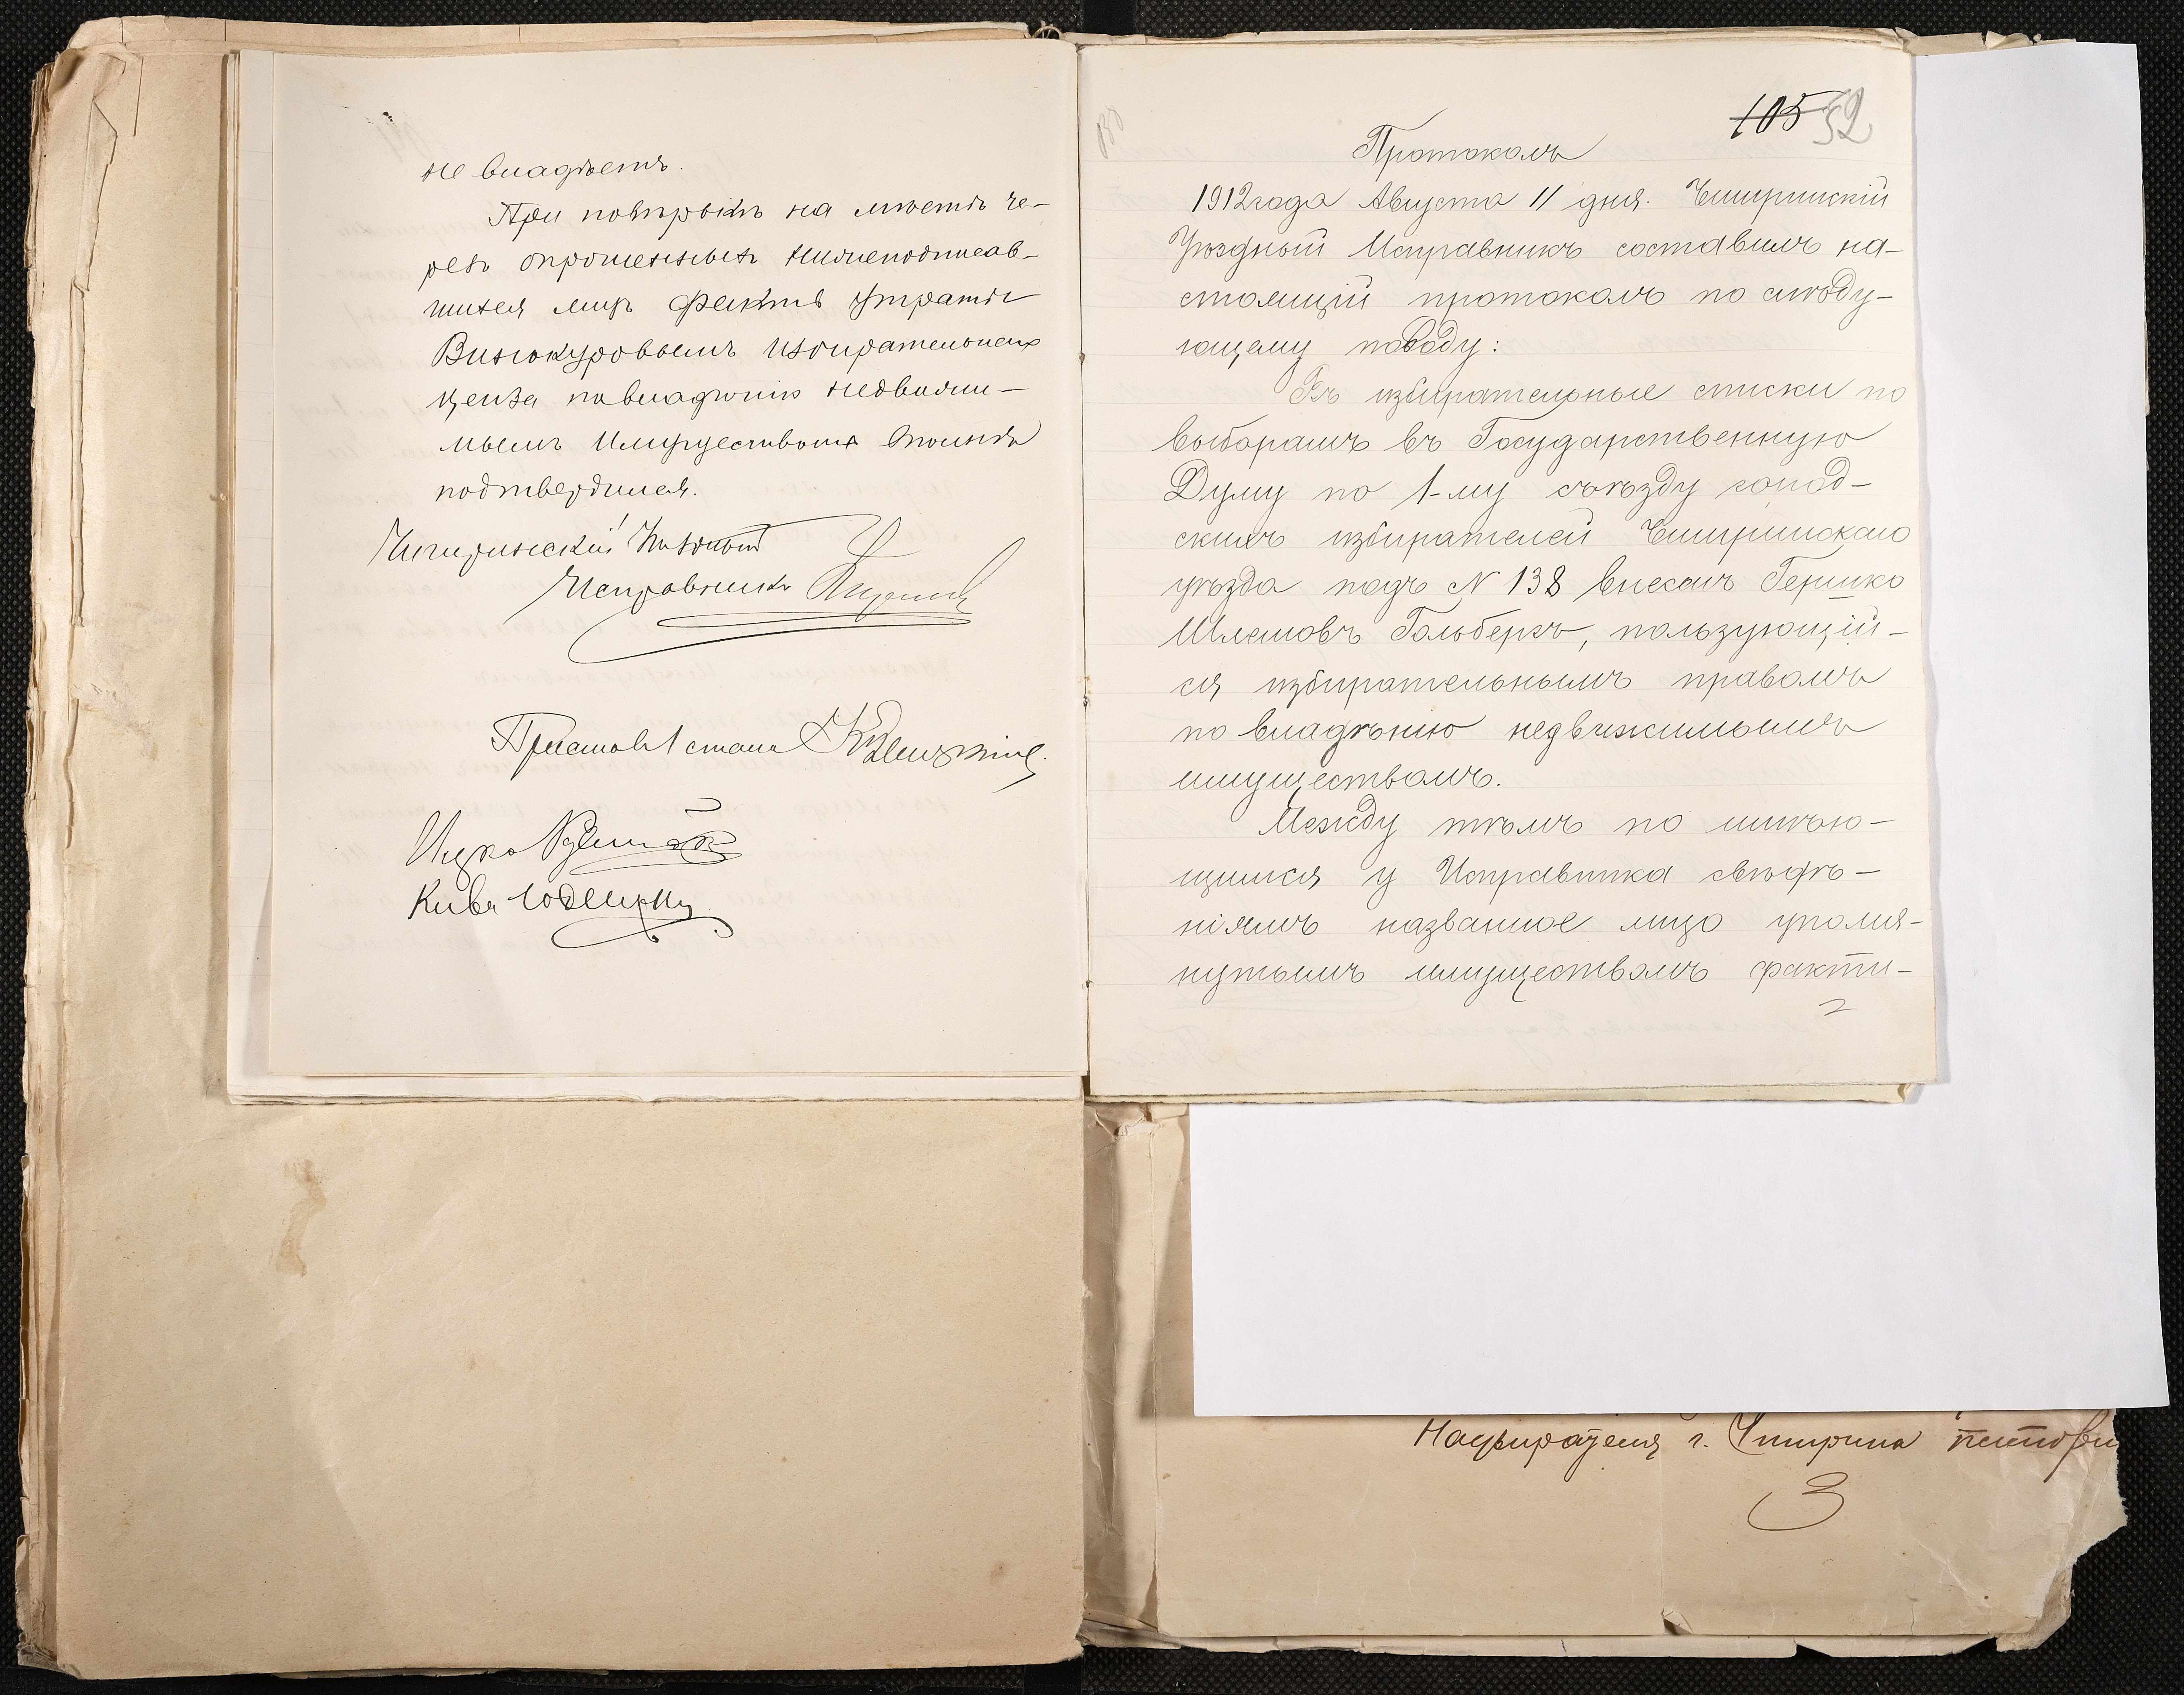 не владѣетъ.
При повѣркѣ на мѣстѣ че-
резъ опрошенныхъ нижеподписав-
шихся лицъ фактъ утраты
Винокуровымъ избирательнаго
ценза по владѣнію недвижи-
мымъ имуществомъ вполнѣ
подтвердился.
Чигиринскій Уѣздный
Исправникъ
Приставъ 1 стана
Ицко
Кива
105 52
Протоколъ
1912 года Августа 11 дня. Чигиринскій
Уѣздный Исправникъ составилъ на-
стоящій протоколъ по слѣду-
ющему поводу:
Въ избирательные списки по
выборамъ въ Государственную
Думу по 1-му съѣзду город-
скихъ избирателей Чигиринскаго
уѣзда подъ N 138 внесенъ Гершко
Шлемовъ Гольбергъ, пользующій-
ся избирательнымъ правомъ
по владѣнію недвижимымъ
имуществомъ.
Между тѣмъ по имѣю-
щимся у Исправника свѣдѣ-
ніямъ названное лицо упомя-
нутымъ имуществомъ факти-
Надзирателя г. Чигирина